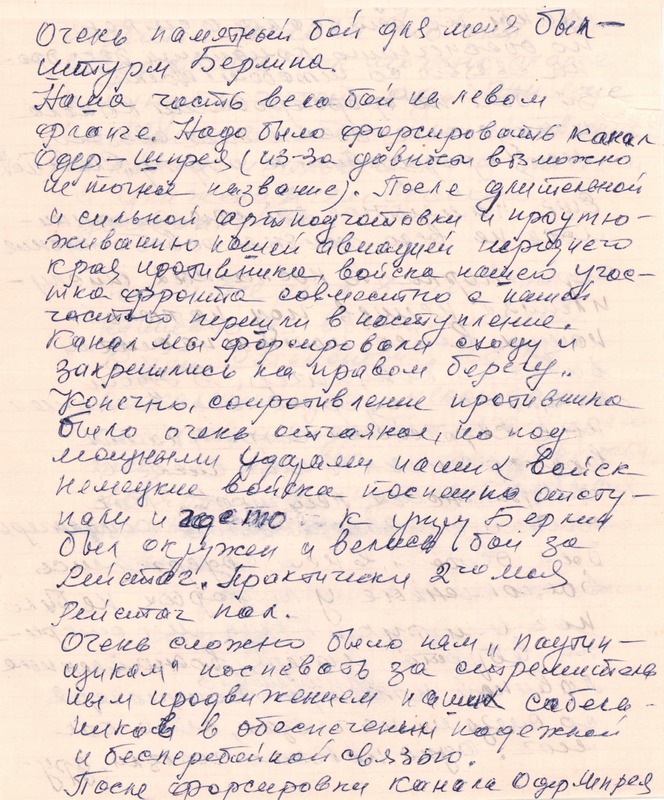 Очень памятный бой для меня был –
штурм Берлина.
Наша часть вела бой на левом
фланге. Надо было форсировать канал
Одер – Шпрея (из-за давности возможно
не точное название). После длительной
и сильной артподготовки и проутю-
живанию нашей авиацией переднего
края противника, войска нашего учас-
тка фронта совместно с нашей
частью перешли в наступление.
Канал мы форсировали сходу и
закрепились на правом берегу.
Конечно, сопротивление противника
было очень отчаяное, но под
мощными ударами наших войск
немецкие войска поспешно отсту-
пали и часто к утру Берлин
был окружен и велись бой за
Рейстаг. Практически 2го мая
Рейстаг пал.
Очень сложно было нам „паутин-
щикам" поспевать за стремитель
ным продвижением наших сабель-
ников в обеспечении надежной
и бесперебойной связью.
После форсировки канала Одер Шпрея